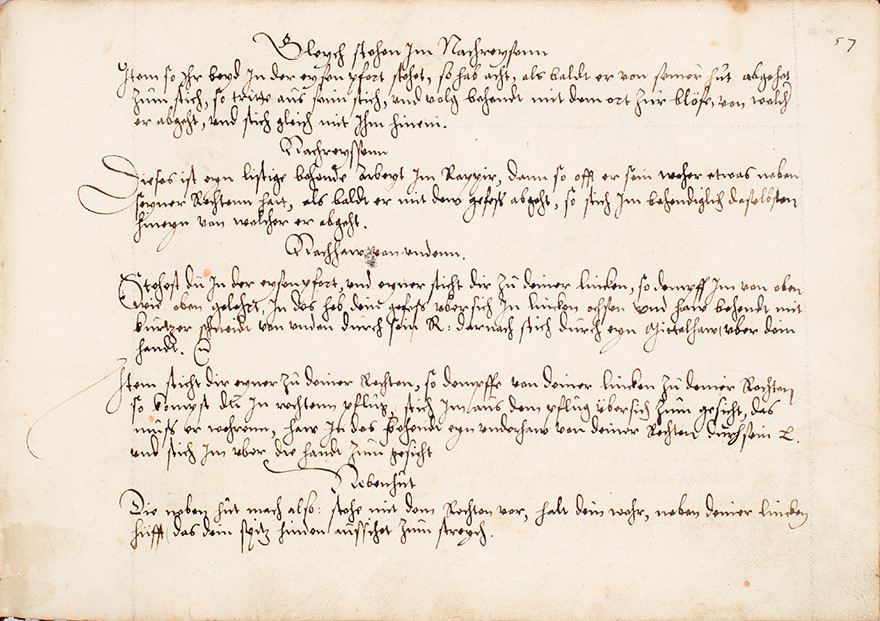 57
Gleych stehen Im Nachreysenn
Item so Ihr beyd In der eysen pfort stehet, so hab acht, als baldt er von seiner hut abgehet
zum stich, so tritt aus seim stich, und volg behendt mit dem ort zur blösse, von welch
er abgeht, und stich gleich mit Ihm hinein.
Nachreyssenn
Dieses ist eyn listige behende arbeyt Im Rappir, dann so offt er sein wehr etwas neben
seyner Rechtenn hatt, als baldt er mit dem gefess abgeht, so stich Im behendiglich daselbsten
hineyn von welcher er abgeht.
Nachhaw von unden.
Stehest du In der eysen pfort, und eyner sticht dir zu deiner lincken, so dempff Im von oben
wie oben gelehrt, In des heb dein gefess ubersich In lincken ochsen und haw behendt mit
kurtzer schneidt von unden durch sein R: darnach stich durch eyn Mittelhaw uber dein
handt.
Item sticht dir eyner zu deiner Rechten, so dempffe von deiner lincken zu deiner Rechten
so kompst du In rechtenn pflug, stich Im aus dem pflug übersich zum gesicht, das
muss er wehrenn, haw In des behendt eyn underhaw von deiner Rechten durch sein L.
und stich Im uber die handt zum gesicht
Nebenhut
Die neben hut mach also: stehe mit dem Rechten vor, halt dein wehr, neben deiner lincken
hüfft, das dein spitz hinden aussichet zum streych.